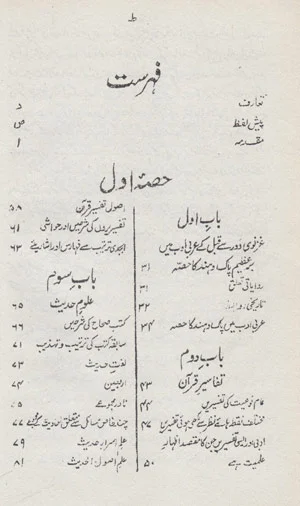 ط
فہرست
تعارف د
پیش لفظ ص
مقدمہ ا
حصۂ اول
باب اول
غزنوی دور سے قبل کے عربی ادب میں
برعظیم پاک و ہند کا حصہ ۳۱
روایاتی تعلق ۳۱
تاریخی روابط ۳۲
عربی ادب میں پاک و ہند کا حصہ ۳۴
باب دوم
تفاسیر قرآن ۴۳
عام نوعیت کی تفسیریں ۴۴
مختلف نقطہ ہائے نظر سے لکھی ہوئی تفسیریں ۴۷
ادبی اور ایسی تفسیریں جن کا مقصد اظہار
علمیت ہے ۵۰
اصولی تفسیر قرآن ۵۸
تفسیروں کی شرحیں اور حواشی ۶۱
ابجدی ترتیب سے فہارس اور اشاریے ۶۳
باب سوم
علوم حدیث ۶۵
کتب صحاح کی شرحیں ۶۶
سابقہ کتب کی ترتیب و تہذیب ۷۱
لغت حدیث ۷۳
اربعین ۷۴
نادر مجموعے ۷۵
چند خاص مسائل سے متعلق احادیث کے مجموعے ۷۷
علم اسرار حدیث ۷۹
علم اصول الحدیث ۸۱